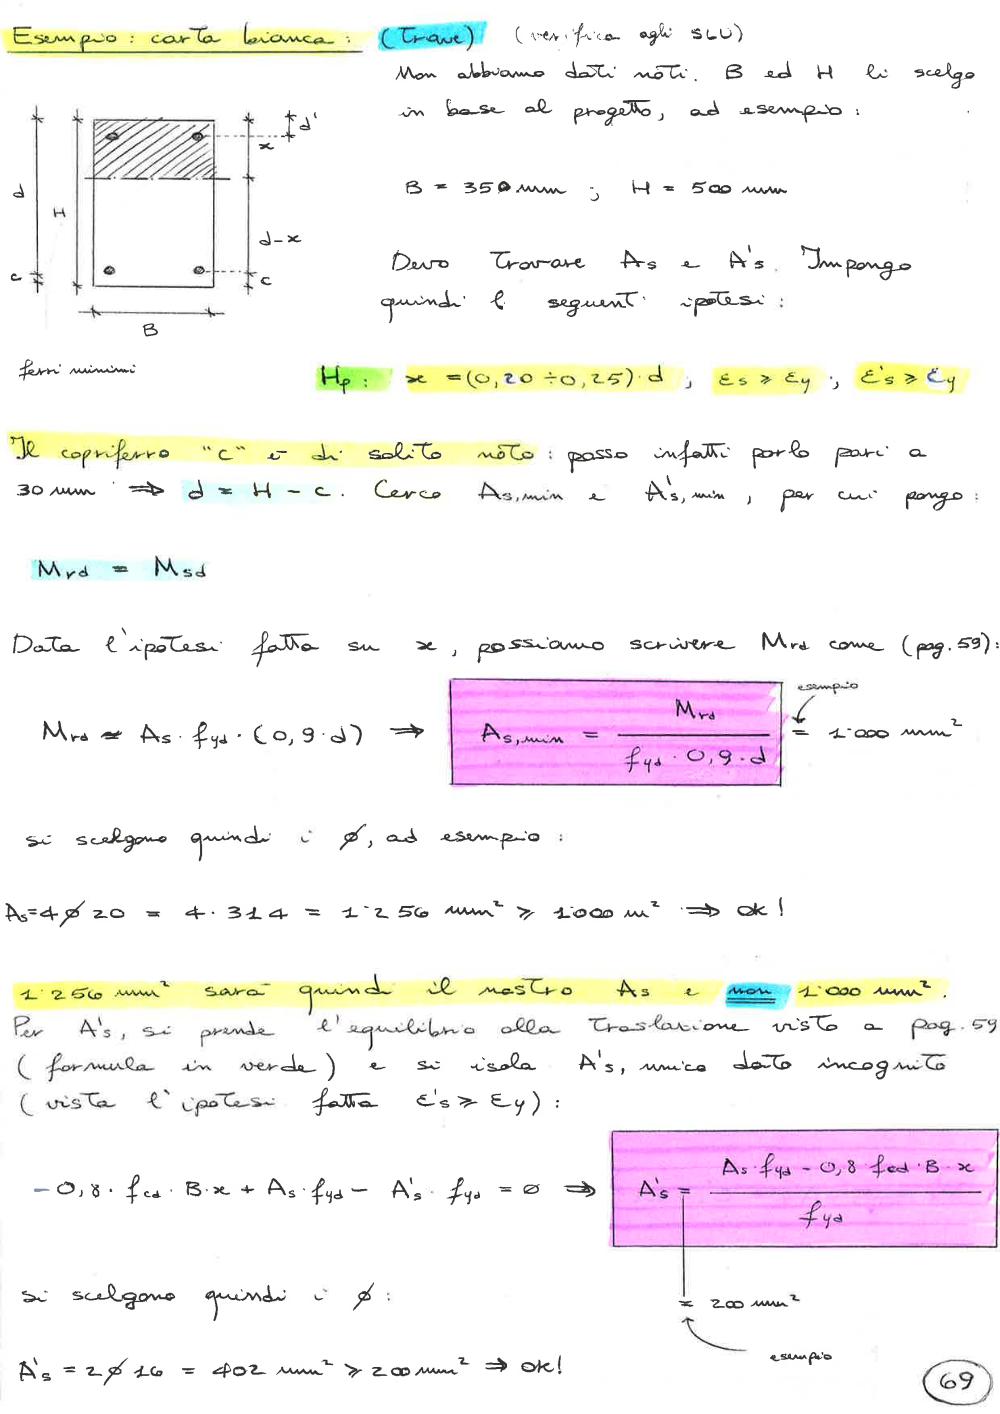 Esempio: carta bianca: (Trave) (verifica agli SLU)
Non abbiamo dati noti. B ed H li scelgo
in base al progetto, ad esempio:
d'
x
d
H
d-x
c
c
B
B = 350 mm ; H = 500 mm
Devo trovare As e A's. Impongo
quindi le seguenti ipotesi:
ferri minimi
Hp: x = (0,20 ÷ 0,25)·d ; εs ≥ εy ; ε's ≥ εy
Il copriferro "c" è di solito noto: posso infatti porlo pari a
30 mm ⇒ d = H - c. Cerco As,min e A's,min, per cui pongo:
Mrd = Msd
Data l'ipotesi fatta su x, possiamo scrivere Mrd come (pag. 59):
Mrd ≃ As · fyd · (0,9·d) ⇒ As,min = Mrd / (fyd · 0,9·d) = 1'000 mm²
esempio
si scelgono quindi i ø, ad esempio:
As = 4ø20 = 4·314 = 1'256 mm² ≥ 1'000 m² ⇒ ok!
1'256 mm² sarà quindi il nostro As e non 1'000 mm².
Per A's, si prende l'equilibrio alla traslazione visto a pag. 59
(formula in verde) e si isola A's, unico dato incognito
(vista l'ipotesi fatta ε's ≥ εy):
-0,8·fcd·B·x + As·fyd - A's·fyd = 0 ⇒ A's = (As·fyd - 0,8·fcd·B·x) / fyd
si scelgono quindi i ø:
= 200 mm²
esempio
A's = 2ø16 = 402 mm² ≥ 200 mm² ⇒ ok!
69